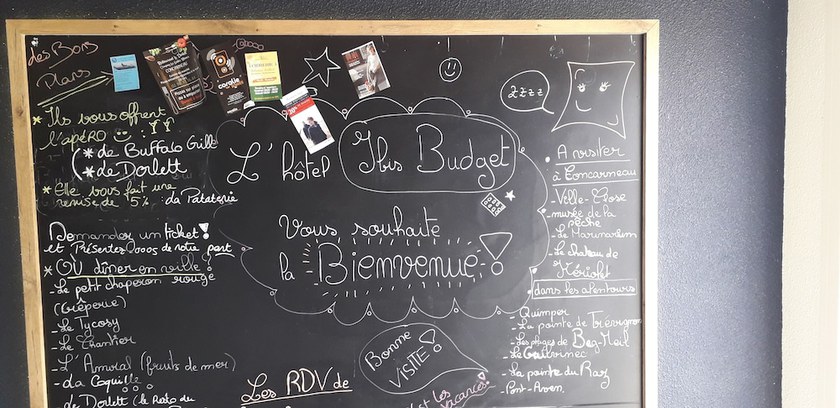 des Bons
Plans
* Ils vous offrent
l'apéro
(* de Buffalo Grill
(* de Dorlett
* Elle vous fait une
remise de 5% da Pataterie
Demander un ticket!
et Présentez vous de notre part
* OÙ dîner en ville?
- Le petit chaperon rouge
(Crêperie)
- Le Tycosy
- Le Chantier
- L'Amiral (fruits de mer)
- da Coquille
de Dorlett (le Resto du
L'hôtel Ibis Budget
Vous souhaite
la Bienvenue!
Bonne
VISITE!
Les RDV de
c'est les
vacances!
zzzz
A visiter
à Concarneau
- Ville-Close
- musée de la
pêche
- Le Marinarium
- Le château de
Kériolet
dans les alentours
- Quimper
- La pointe de Trévignon
- Les plages de Beg-Meil
- Le Guilvinec
- La pointe du Raz
- Pont-Aven